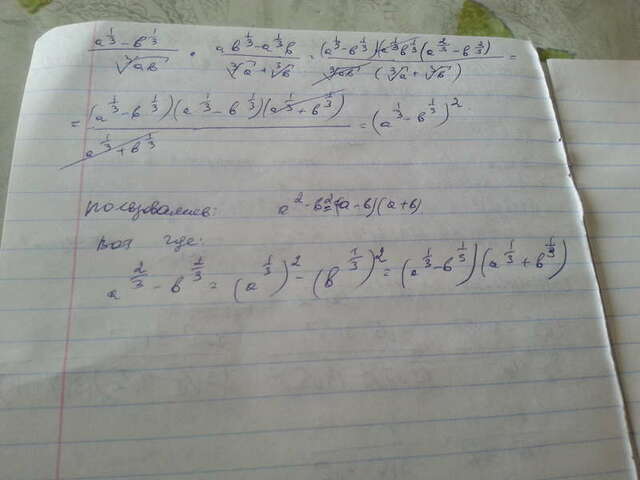 (a^{1/3} - b^{1/3}) / ∛(ab) · (ab^{1/3} - a^{1/3}b) / (∛a + ∛b) = (a^{1/3} - b^{1/3})(a^{1/3}b^{1/3}(a^{2/3} - b^{2/3}) / (∛(ab) (∛a + ∛b)) =
= (a^{1/3} - b^{1/3})(a^{1/3} - b^{1/3})(a^{1/3} + b^{1/3}) / (a^{1/3} + b^{1/3}) = (a^{1/3} - b^{1/3})^2
пользовались: a^2 - b^2 = (a - b)(a + b)
вот где:
a^{2/3} - b^{2/3} = (a^{1/3})^2 - (b^{1/3})^2 = (a^{1/3} - b^{1/3})(a^{1/3} + b^{1/3})